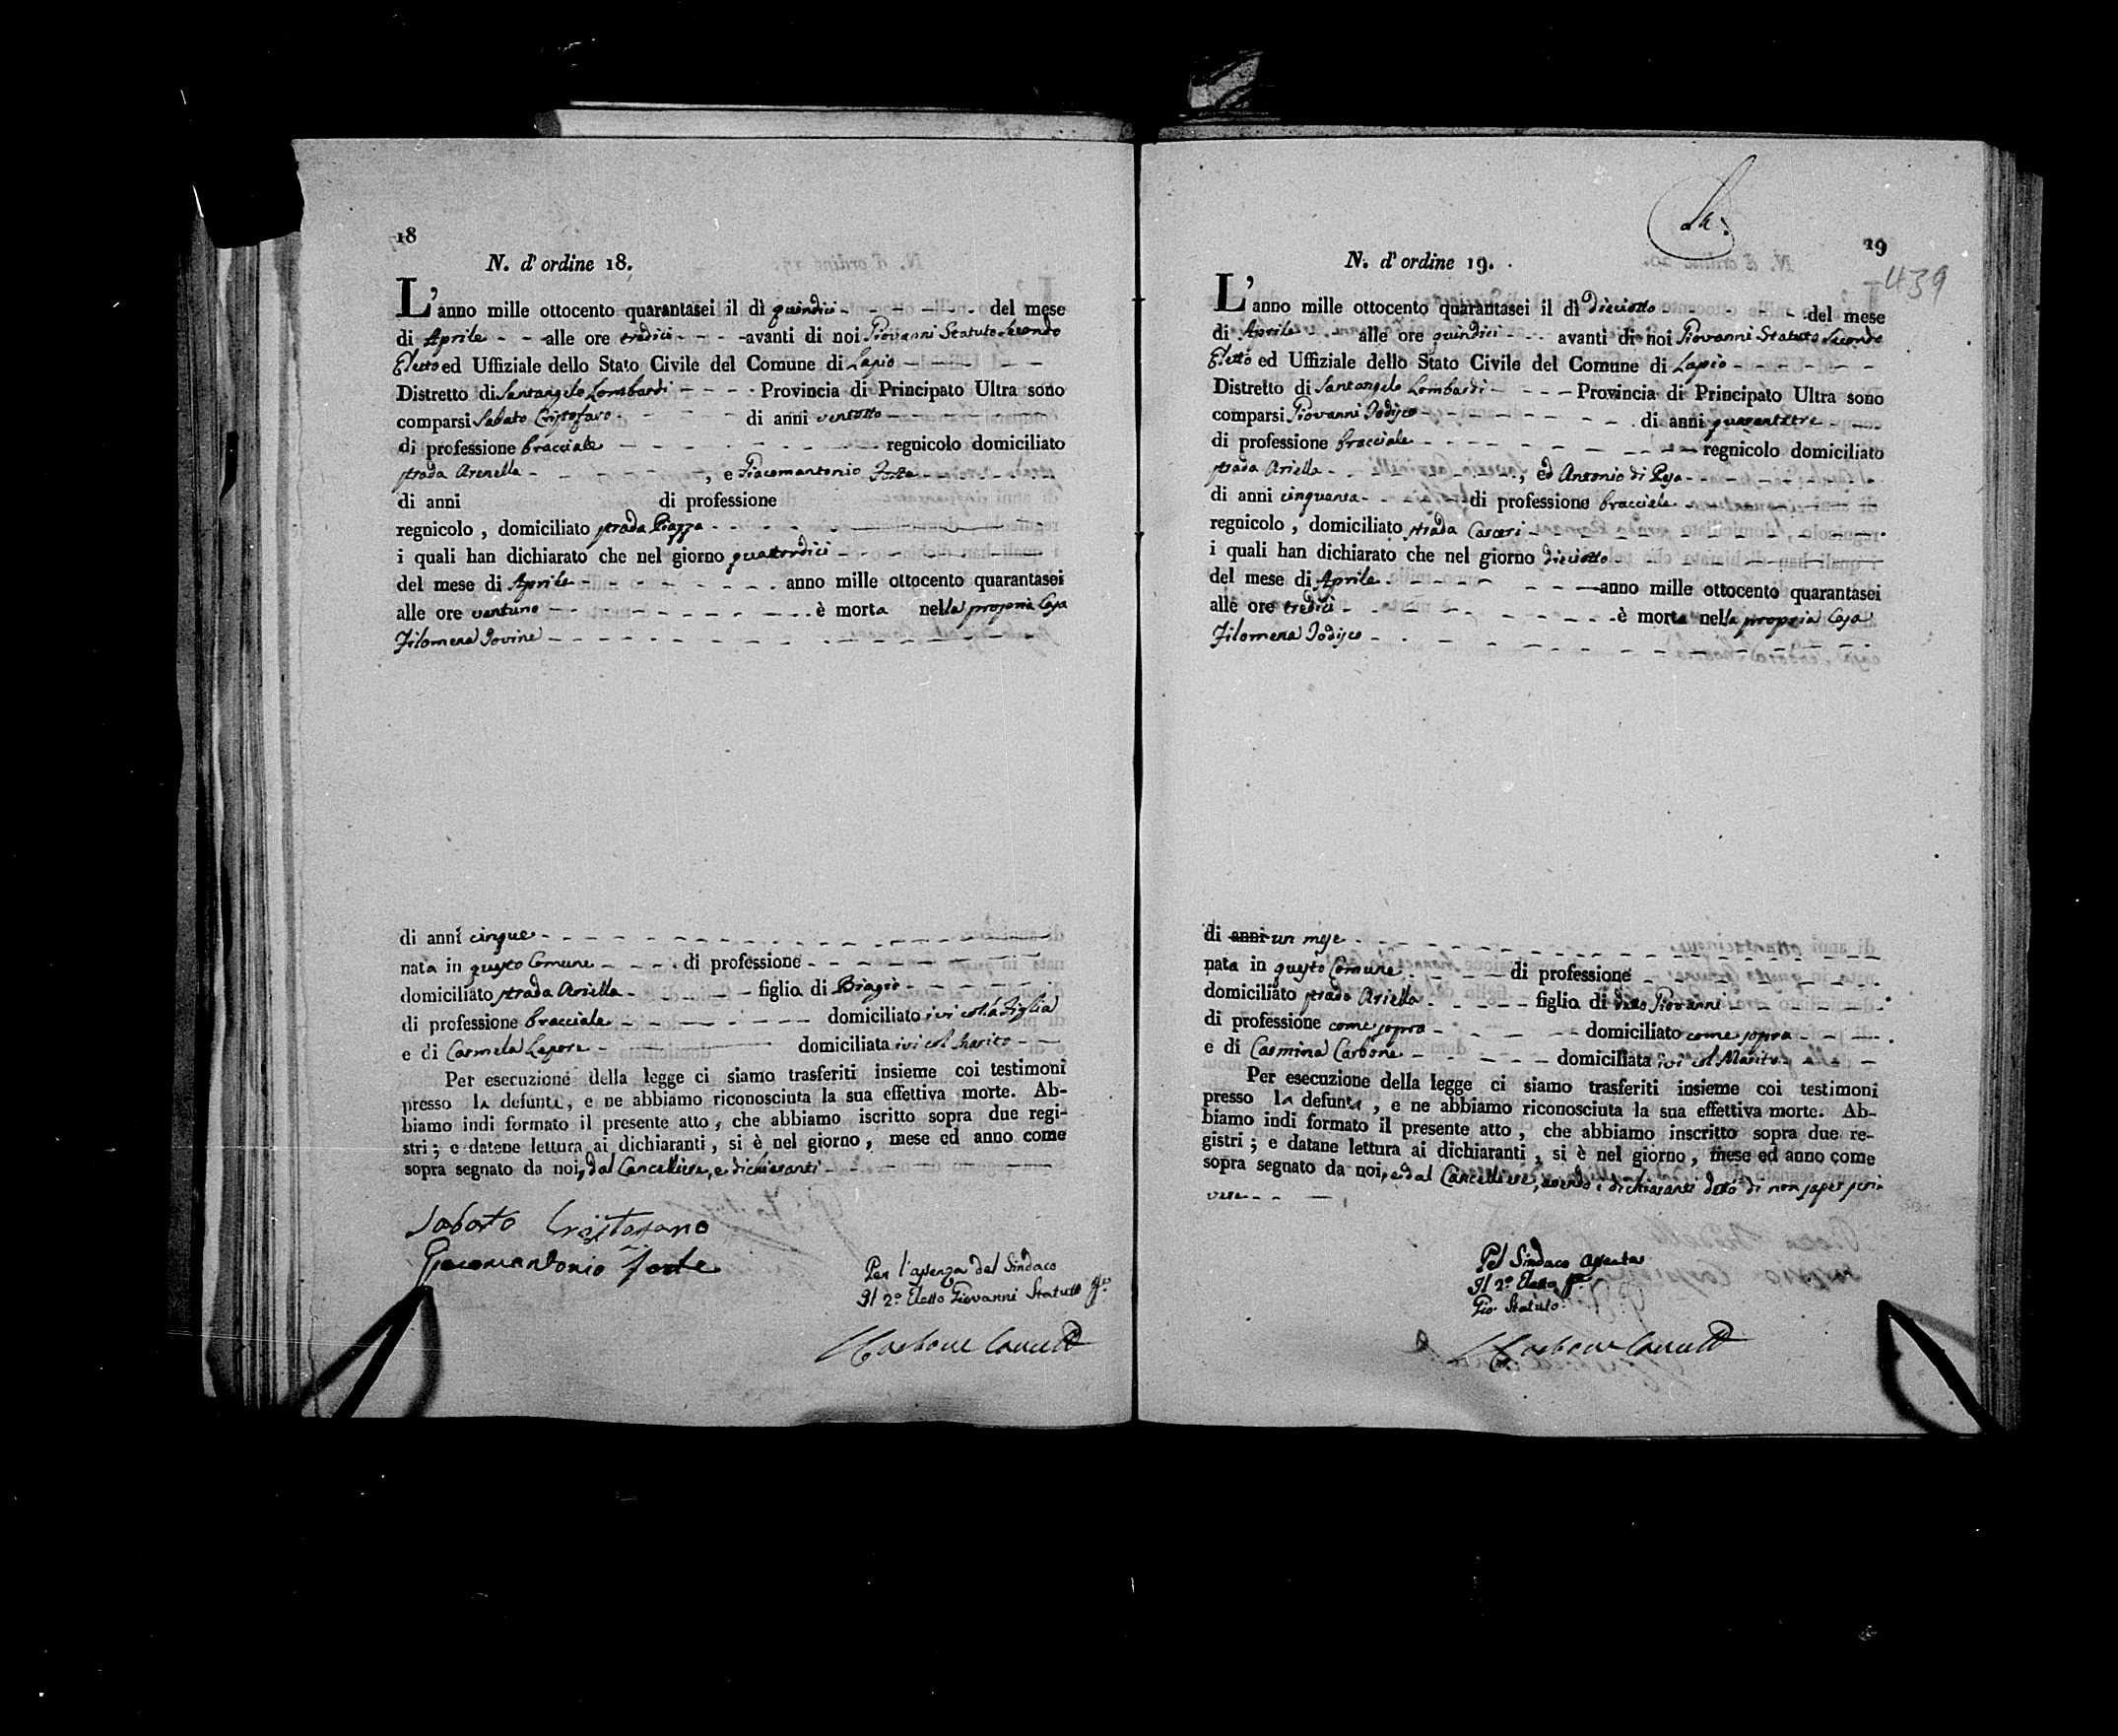 18
N. d'ordine 18.
L'anno mille ottocento quarantasei il dì quindici del mese
di Aprile alle ore tredici avanti di noi Giovanni Statuto Secondo
Eletto ed Uffiziale dello Stato Civile del Comune di Lapio
Distretto di Santangelo Lombardi Provincia di Principato Ultra sono
comparsi Sabato Cristofaro di anni ventotto
di professione bracciale regnicolo domiciliato
strada Arenella , e Giacomantonio Forte
di anni di professione
regnicolo , domiciliato strada Piazza
i quali han dichiarato che nel giorno quattordici
del mese di Aprile anno mille ottocento quarantasei
alle ore ventuno è morta nella propria Casa
Filomena Iovine
di anni cinque
nata in questo Comune di professione
domiciliato strada Ariella figlia di Biagio
di professione bracciale domiciliato ivi figlia
e di Carmela Lepore domiciliata ivi col Marito
Per esecuzione della legge ci siamo trasferiti insieme coi testimoni
presso la defunta, e ne abbiamo riconosciuta la sua effettiva morte. Ab-
biamo indi formato il presente atto, che abbiamo iscritto sopra due regi-
stri; e datene lettura ai dichiaranti, si è nel giorno, mese ed anno come
sopra segnato da noi, dal Cancelliere, e dichiaranti
Sabato Cristofano
Giacomantonio forte
Per l'assenza del Sindaco
Il 2º Eletto Giovanni Statuto
Carbone
19
439
N. d'ordine 19.
L'anno mille ottocento quarantasei il dì diciotto del mese
di Aprile alle ore quindici avanti di noi Giovanni Statuto Secondo
Eletto ed Uffiziale dello Stato Civile del Comune di Lapio
Distretto di Santangelo Lombardi Provincia di Principato Ultra sono
comparsi Giovanni Iodisco di anni quarantatre
di professione bracciale regnicolo domiciliato
strada Ariella , ed Antonio di
di anni cinquanta di professione bracciale
regnicolo , domiciliato strada Carceri
i quali han dichiarato che nel giorno diciotto
del mese di Aprile anno mille ottocento quarantasei
alle ore tredici è morta nella propria Casa
Filomena Iodisco
di anni un mese
nata in questo Comune di professione
domiciliato strada Ariella figlia di detto Giovanni
di professione come sopra domiciliato come sopra
e di Carmina Carbone domiciliata ivi col Marito
Per esecuzione della legge ci siamo trasferiti insieme coi testimoni
presso la defunta, e ne abbiamo riconosciuta la sua effettiva morte. Ab-
biamo indi formato il presente atto, che abbiamo inscritto sopra due re-
gistri; e datane lettura ai dichiaranti, si è nel giorno, mese ed anno come
sopra segnato da noi, e dal Cancelliere, avendo i dichiaranti detto di non saper scri-
vere
Pel Sindaco assente
Il 2º Eletto
Gio. Statuto
Carbone